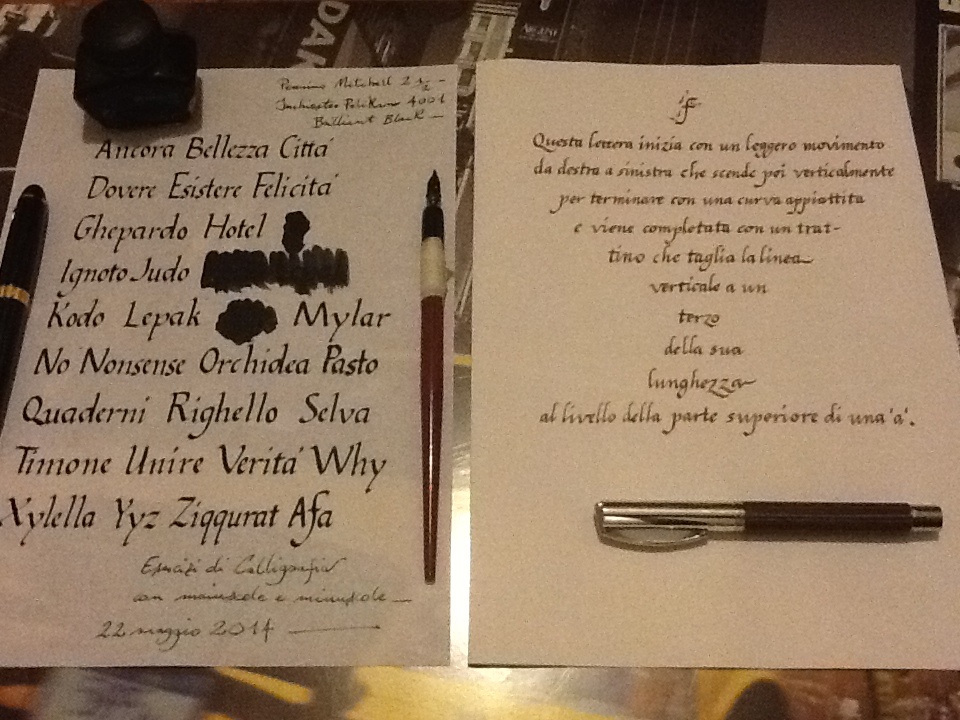 Pennino Mitchell 2 1/2 —
Inchiostro Pelikan 4001
Brilliant Black —
Ancora Bellezza Città
Dovere Esistere Felicità
Ghepardo Hotel
Ignoto Judo
Kodo Lepak Mylar
No Nonsense Orchidea Pasto
Quaderni Righello Selva
Timone Unire Verità Why
Xylella Yyz Ziqqurat Afa
Esercizi di Calligrafia
con maiuskole e minuskole —
22 maggio 2014 —
f
Questa lettera inizia con un leggero movimento
da destra a sinistra che scende poi verticalmente
per terminare con una curva appiattita
e viene completata con un trat-
tino che taglia la linea
verticale a un
terzo
della sua
lunghezza
al livello della parte superiore di una 'a'.